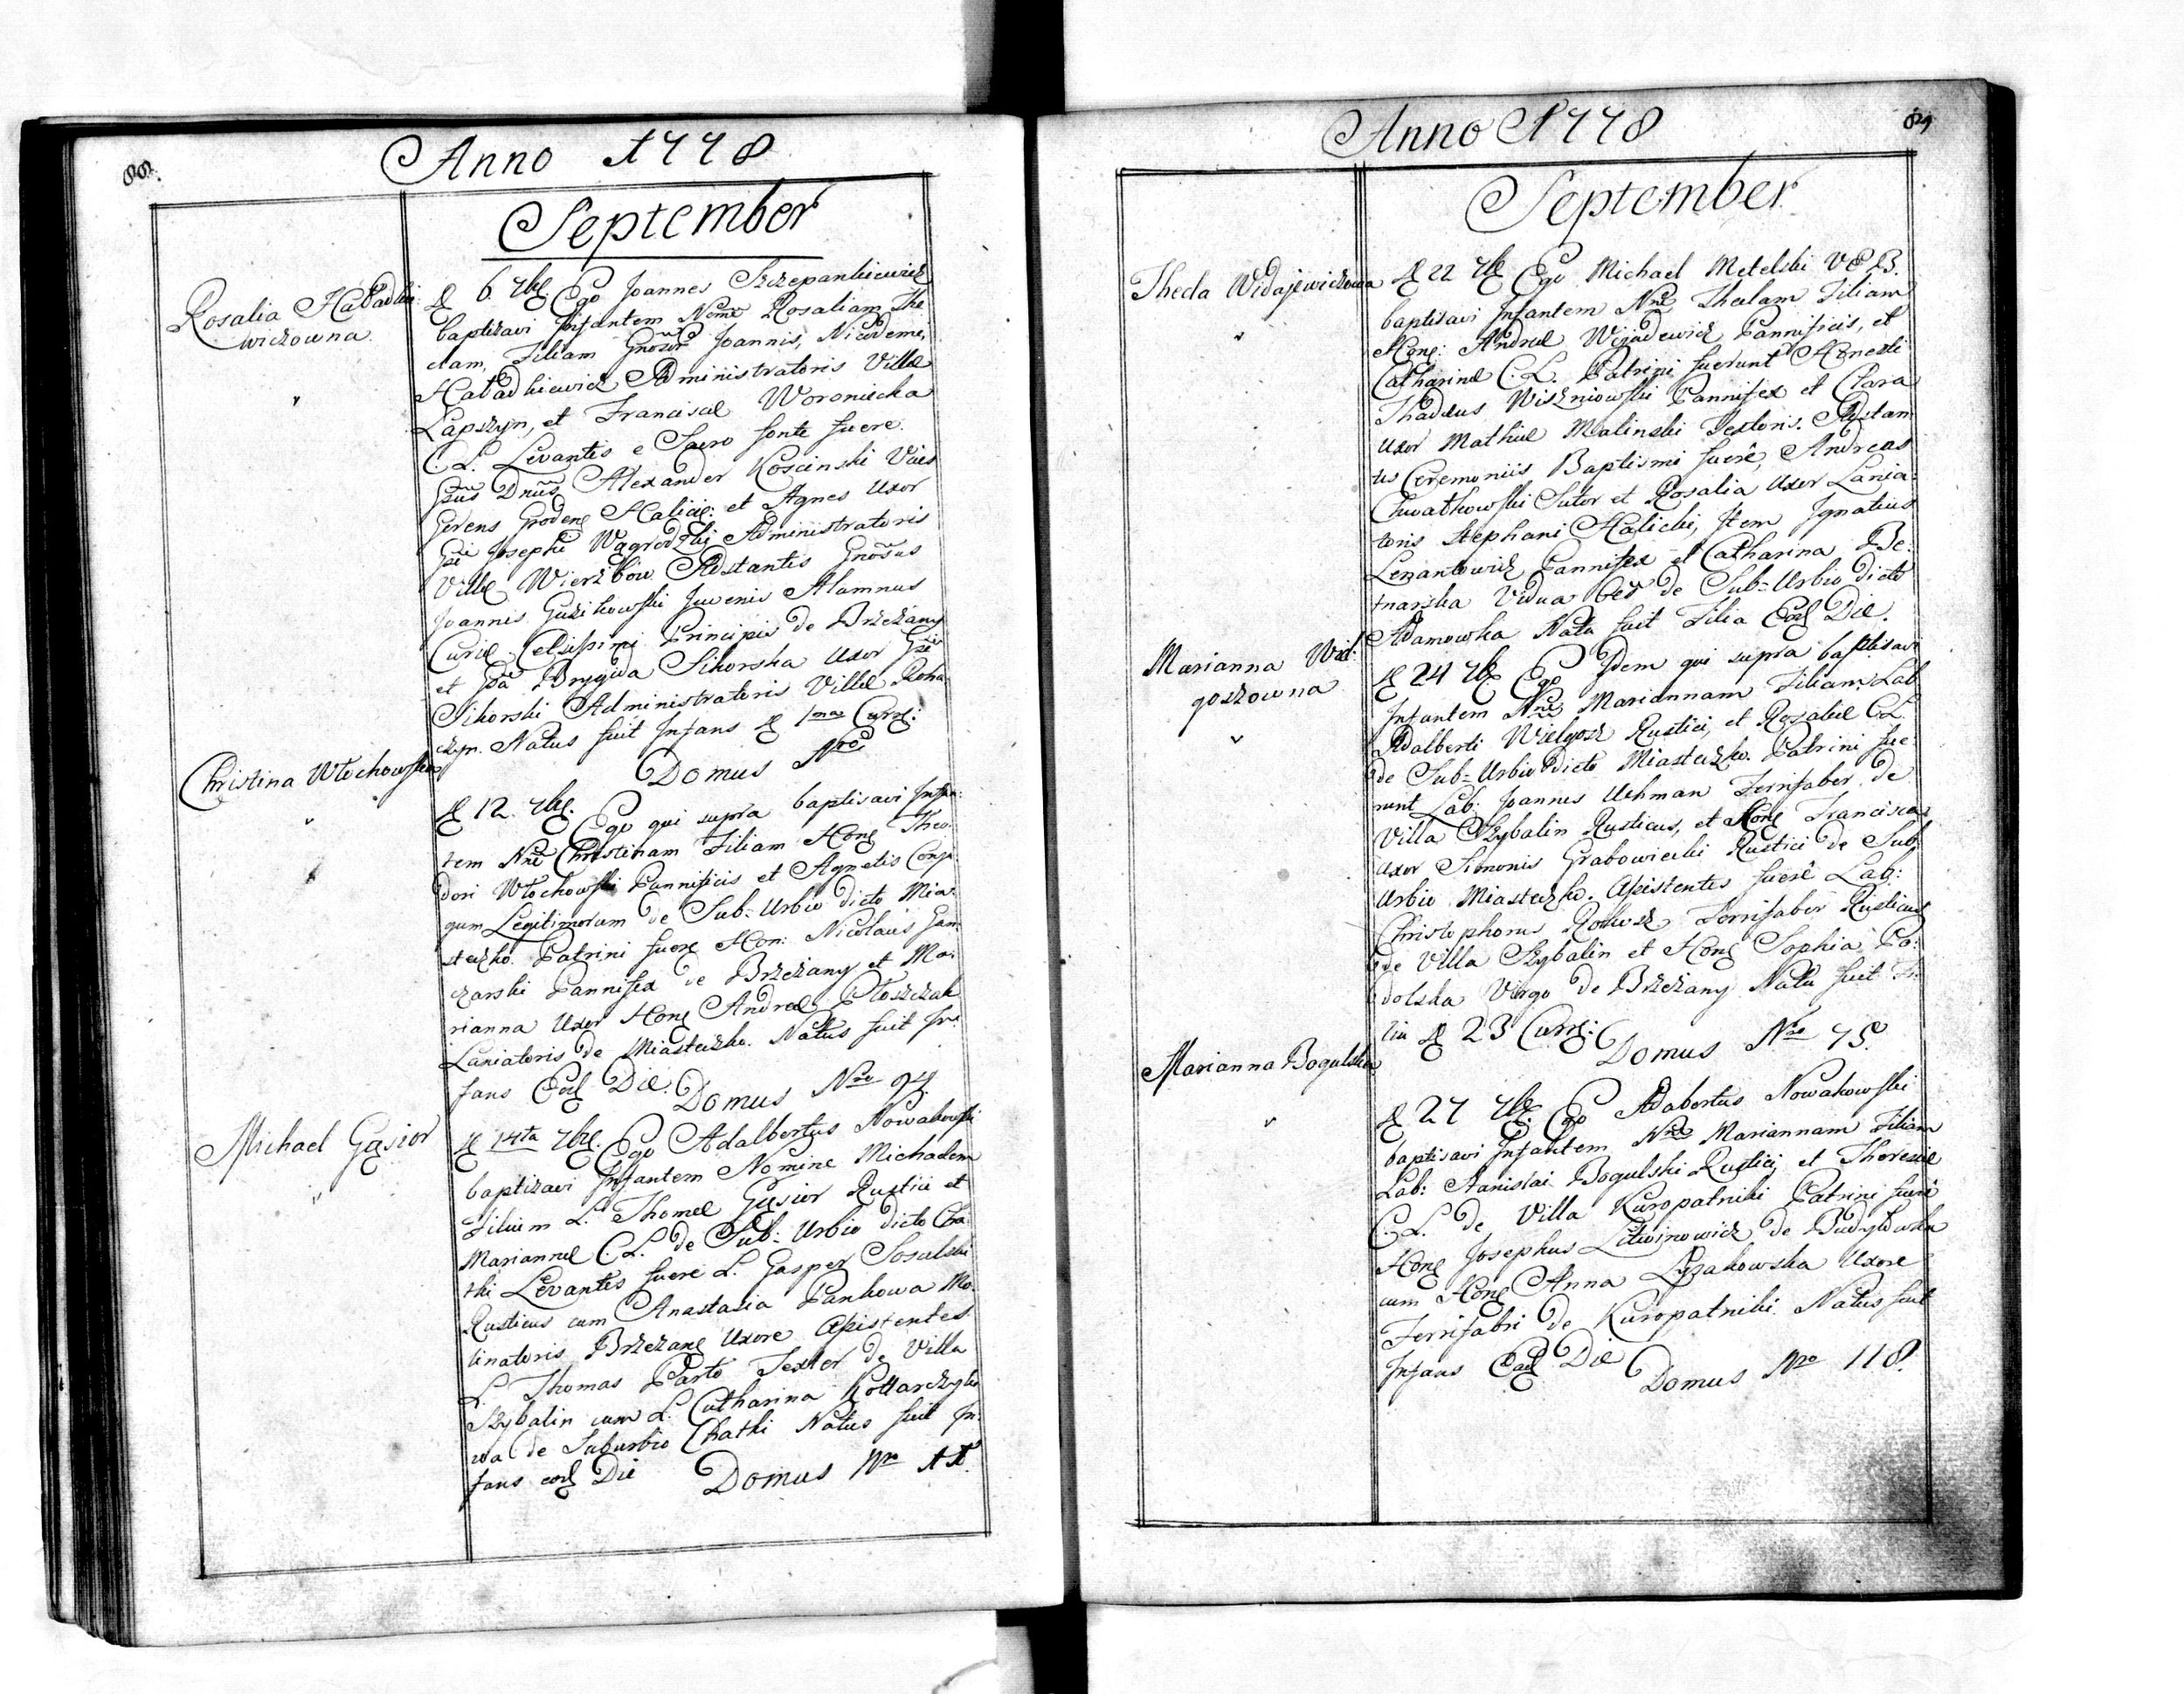 88.
Anno 1778
September
Rosalia Habadkie
wiczowna
D 6. 7bris Ego Joannes Szczepankiewicz
baptizavi Infantem Nomē Rosaliam The
clam, Filiam Gnosor Joannis, Nicodemi,
Habadkiewicz Administratoris Villæ
Łapszyn, et Franciscæ Woroniecka
C. L. Levantes e Sacro fonte fuere.
Gsus Dnus Alexander Koscinski Vices
Gerens Grodens Halicie: et Agnes Uxor
Gsi Josephi Wągrodzki Administratoris
Villæ Wierzbów Adstantes Gnosus
Joannis Guzikowski Juvenis Alumnus
Curiæ Celsissimi Principis de Brzeżany
et Gsa Brygida Sikorska Uxor Gsi
Sikorski Administratoris Villæ Roha
czyn. Natus fuit Infans D 1ma Curs:
Domus Nro
Christina Włochowska
D 12. 7bris. Ego qui supra baptisavi Infan:
tem Nne Christinam Filiam Hons Theo:
dori Włochowski Pannificis et Agnetis Conju:
gum Legitimorum de Sub-Urbio dicto Mia:
steczko. Patrini fuere Hon: Nicolaus Gan
czarski Pannifex de Brzeżany et Ma:
rianna Uxor Hons Andreæ Płoszczak
Laniatoris de Miasteczko. Natus fuit In:
fans Eod Die. Domus Nro 94.
Michael Gąsior
D 14ta 7bris. Ego Adalbertus Nowakowski
baptizavi Infantem Nomine Michaelem
Filium L. Thomæ Gąsior Rustici et
Mariannæ C. L. de Sub-Urbio dicto Cha
tki Levantes fuere L. Gasper Sosulski
Rusticus cum Anastasia Pankowa Mo
linatoris Brzeżans Uxore Assistentes
L. Thomas Parto Textor de Villa
Szybalin cum L. Catharina Kottarczyko
wa de Suburbio Chatki Natus fuit In:
fans eod Die Domus Nro 11.
89
Anno 1778
September
Thecla Widajewiczowna
D 22 7bris Ego Michael Metelski V C B.
baptisavi Infantem Nne Theclam Filiam
Hons: Andreæ Wijadewicz Pannificis, et
Catharinæ C. L. Patrini fuerunt Honesti
Thadeus Wiszniowski Pannifex et Clara
Uxor Mathiæ Malinski Textoris. Adstan
tes Ceremoniis Baptismi fuere, Andreas
Chwatkowski Sutor et Rosalia Uxor Lania:
toris Stephani Halicki, Item Ignatius
Lewantowicz Pannifex et Catharina Be:
tnarska Vidua oes de Sub-Urbio dicto
Adamowka Nata fuit Filia Eod Die.
Marianna Wiel:
goszowna
D 24 7bris Ego Idem qui supra baptisavi
Infantem Nne Mariannam Filiam Lab
Adalberti Wielgosz Rustici, et Rosaliæ C L
de Sub-Urbio dicto Miasteczko. Patrini fue
runt Lab: Joannes Uchman Ferrifaber de
Villa Szybalin Rusticus, et Hons Francisca
Uxor Simonis Grabowiecki Rustici de Sub
Urbio Miasteczko. Assistentes fuere Lab:
Christophorus Ferrifaber Rusticus
de Villa Szybalin et Hons Sophia Po:
dolska Virgo de Brzeżany Nata fuit Fi
lia D 23 Curs: Domus Nro 75.
Marianna Bogulska
D 27 7bris Ego Adabertus Nowakowski
baptisavi Infantem Nne Mariannam Filiam
Lab: Stanislai Bogulski Rustici et Theresiæ
C. L. de Villa Kuropatniki Patrini fuere
Hons Josephus Litwinowicz de Budyłowka
cum Hons Anna Łyzakowska Uxore
Ferrifabri de Kuropatniki Natus fuit
Infans Eod Die Domus Nro 118.